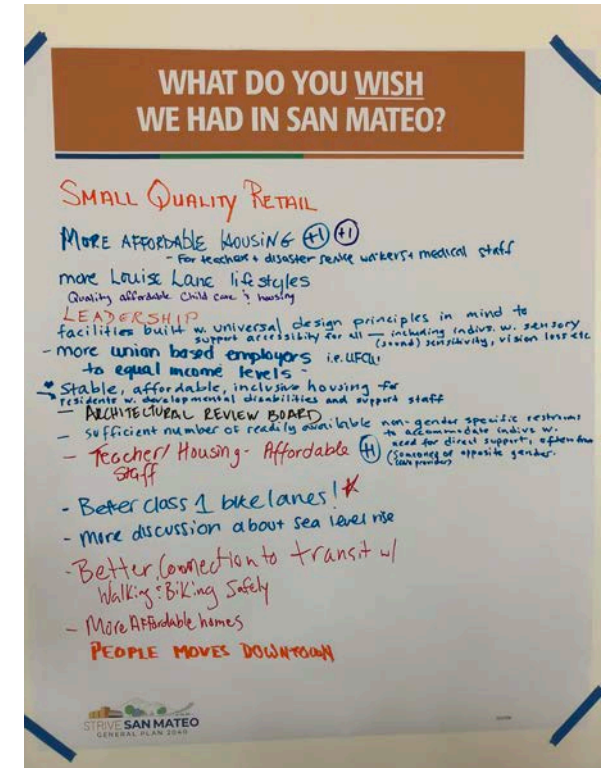 WHAT DO YOU WISH
WE HAD IN SAN MATEO?
SMALL QUALITY RETAIL
MORE AFFORDABLE HOUSING +1 +1
- For teachers + disaster service workers + medical staff
more Louise Lane lifestyles
Quality affordable child care & housing
LEADERSHIP
facilities built w. universal design principles in mind to
support accessibility for all — including indivs. w. sensory
(sound) sensitivity, vision loss etc
- more union based employers i.e. UFCW
to equal income levels -
* Stable, affordable, inclusive housing for
residents w. developmental disabilities and support staff
- ARCHITECTURAL REVIEW BOARD
- sufficient number of readily available non-gender specific restrooms
to accommodate indivs w.
need for direct support, often from
(someone of opposite gender.
(care provider)
- Teacher/Housing - Affordable +1
Staff
- Better class 1 bike lanes!
- more discussion about sea level rise
- Better Connection to transit w/
Walking & Biking Safely
- More Affordable homes
PEOPLE MOVES DOWNTOWN
STRIVE SAN MATEO
GENERAL PLAN 2040